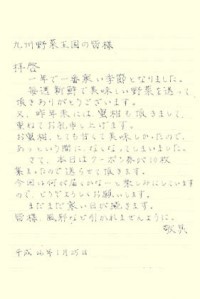 九州野菜王国の皆様
拝啓
一年で一番寒い季節となりました。
毎週新鮮で美味しい野菜を送って
頂きありがとうございます。
又、昨年末には、蜜柑も頂きまして、
重ねてお礼申し上げます。
お蜜柑、とても甘くて美味しかったので、
あっという間に、なくなってしまいました。
さて、本日はクーポン券が10枚
集まりので送らせて頂きます。
今回は何が届くのかなーと楽しみにしています
ので、どうぞよろしくお願いします。
まだまだ寒い日が続きます。
皆様、風邪など引かれませんように。
敬具
平成 年1月25日